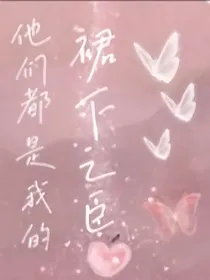 他们都是我的
裙下之臣